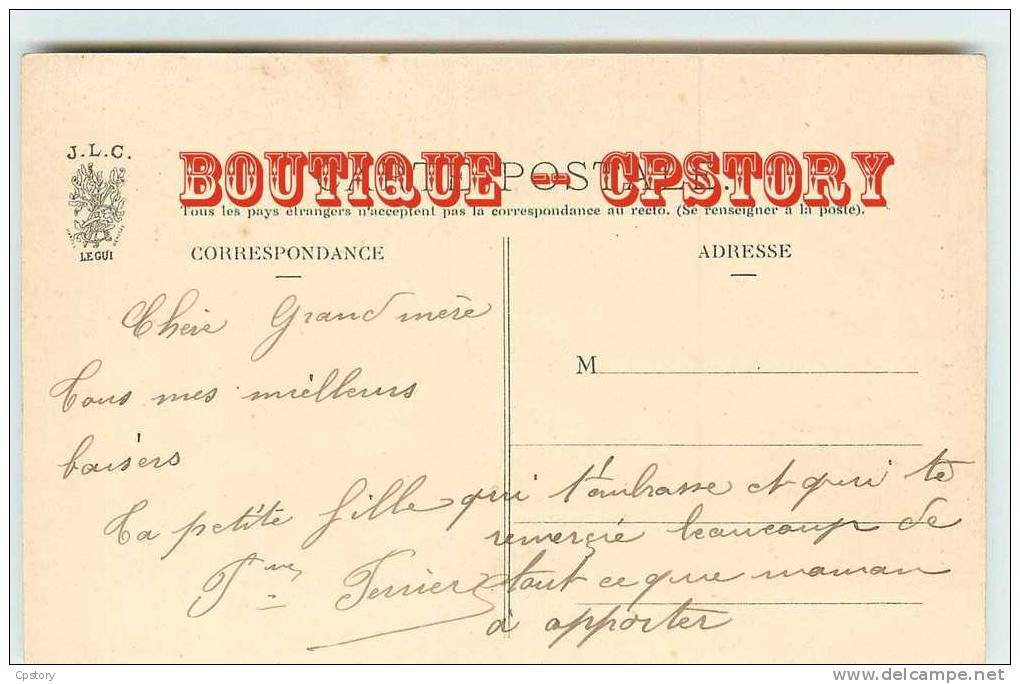 J.L.C.
LE GUI
BOUTIQUE - CPSTORY
CARTE POSTALE.
Tous les pays étrangers n'acceptent pas la correspondance au recto. (Se renseigner à la poste).
CORRESPONDANCE
ADRESSE
M
Cheie Grand mère
Tous mes mieilleurs
baisers
Ta petite fille qui t'aubrasse et qui te
remerçie beaucoup de
tout ce que maman
à apporter
Terrier
Cpstory
www.delcampe.net